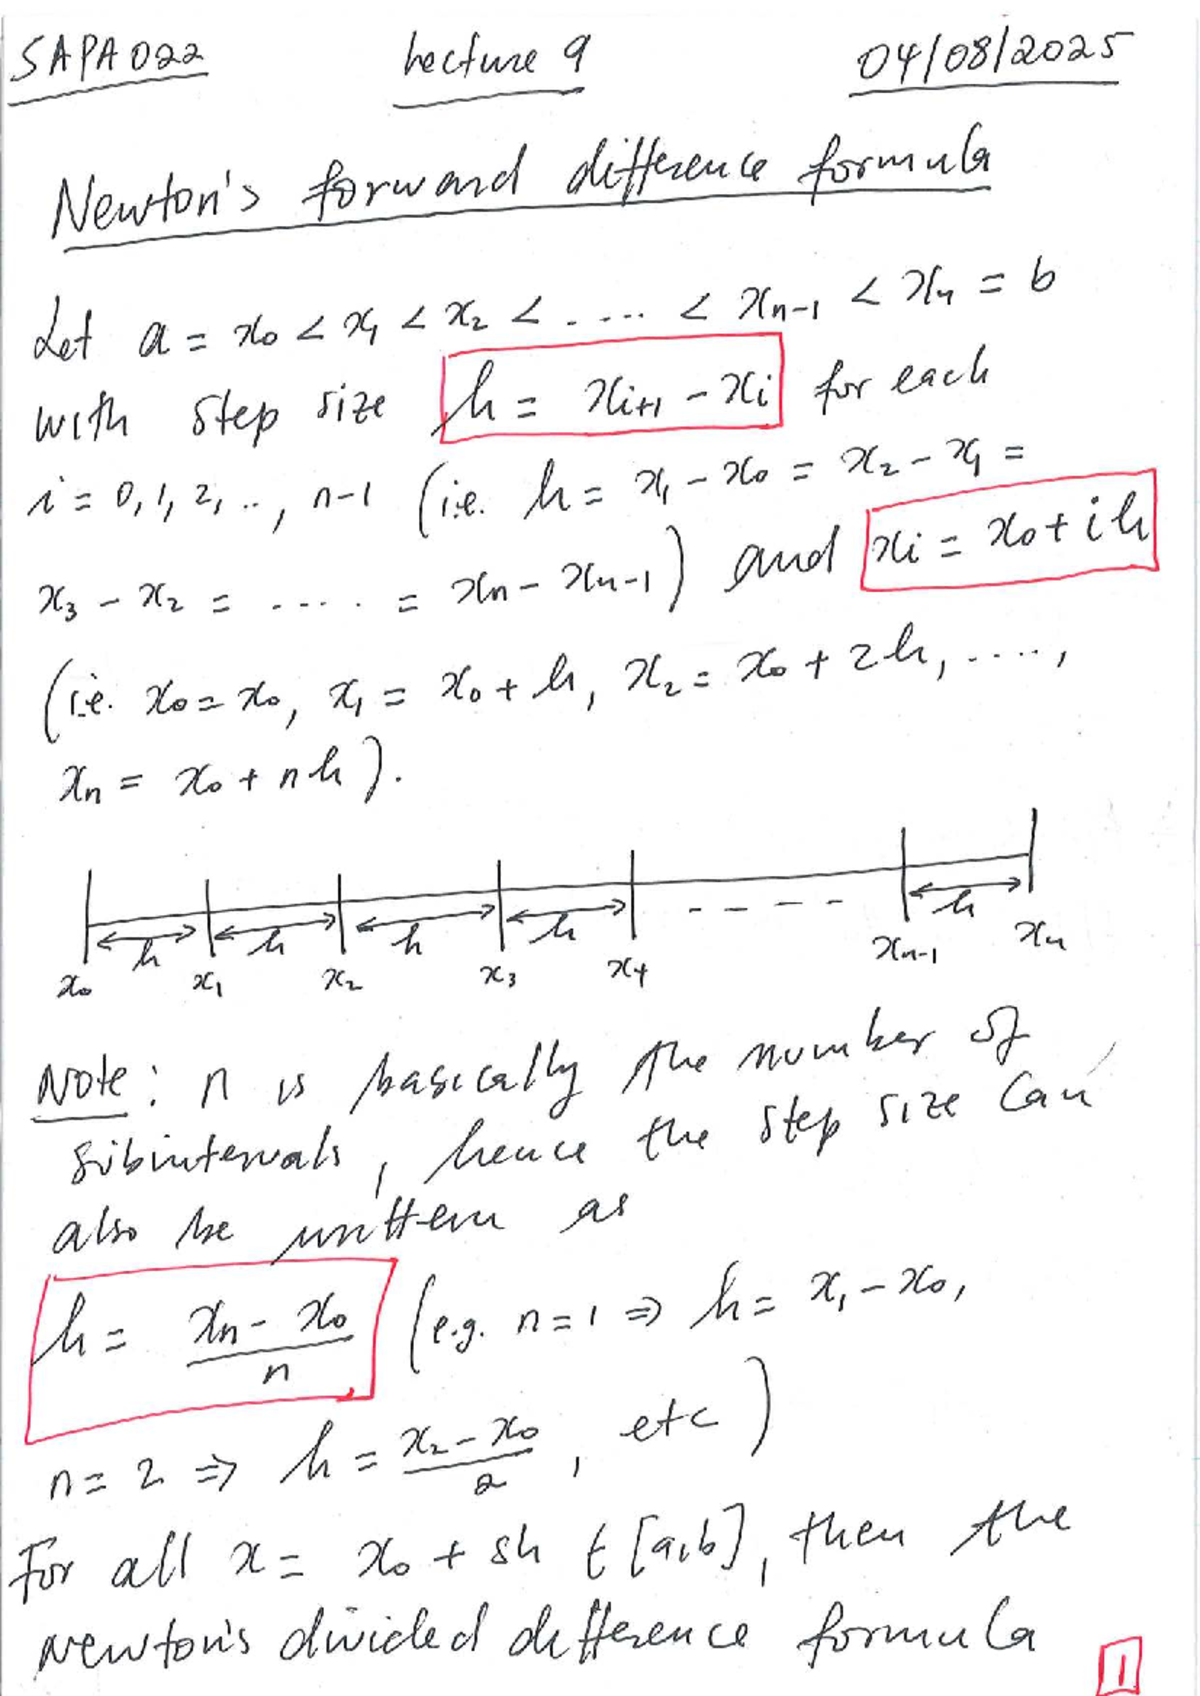 SAPA022 Lecture 9 04/08/2025
Newton's forward difference formula
Let a = x₀ < x₁ < x₂ < ..... < xₙ₋₁ < xₙ = b
with step size h = xᵢ₊₁ - xᵢ for each
i = 0, 1, 2, .., n-1 (i.e. h = x₁ - x₀ = x₂ - x₁ =
x₃ - x₂ = ..... = xₙ - xₙ₋₁) and xᵢ = x₀ + ih
(i.e. x₀ = x₀, x₁ = x₀ + h, x₂ = x₀ + 2h, ....,
xₙ = x₀ + nh).
h h h h - - - - - h
x₀ x₁ x₂ x₃ x₄ xₙ₋₁ xₙ
Note: n is basically the number of
subintervals, hence the step size can
also be written as
h = (xₙ - x₀)/n (e.g. n = 1 ⇒ h = x₁ - x₀,
n = 2 ⇒ h = (x₂ - x₀)/2, etc)
For all x = x₀ + sh ∈ [a,b], then the
Newton's divided difference formula
1